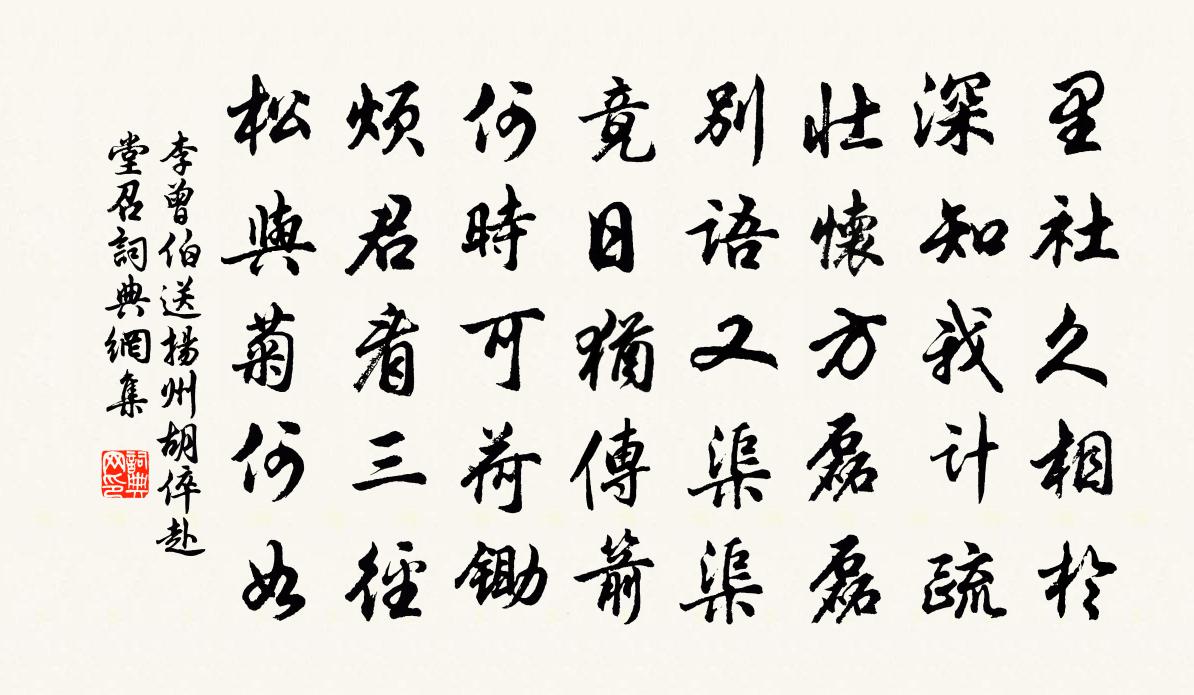 里社久相於
深知我計疏
壯懷方磊磊
別語又渠渠
竟日猶傳箭
何時可荷鋤
煩君看三徑
松與菊何如
李曾伯送揚州胡倅赴
堂召詞典網集
詞典网印